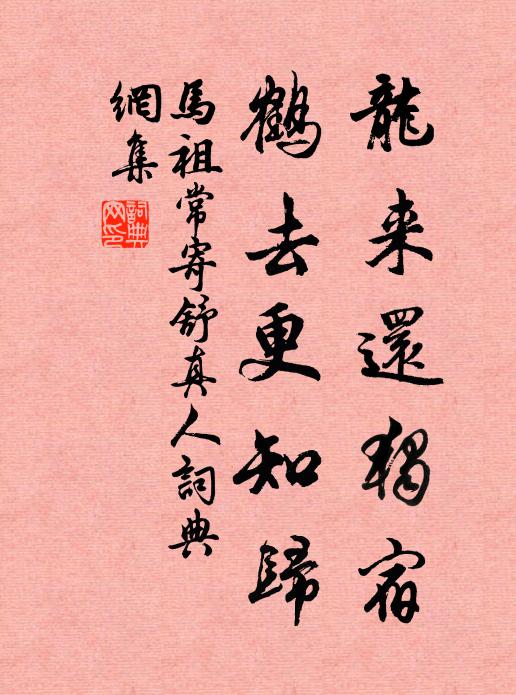 龍来還獨宿
鶴去更知歸
馬祖常寄舒真人詞典
網集
詞典網印